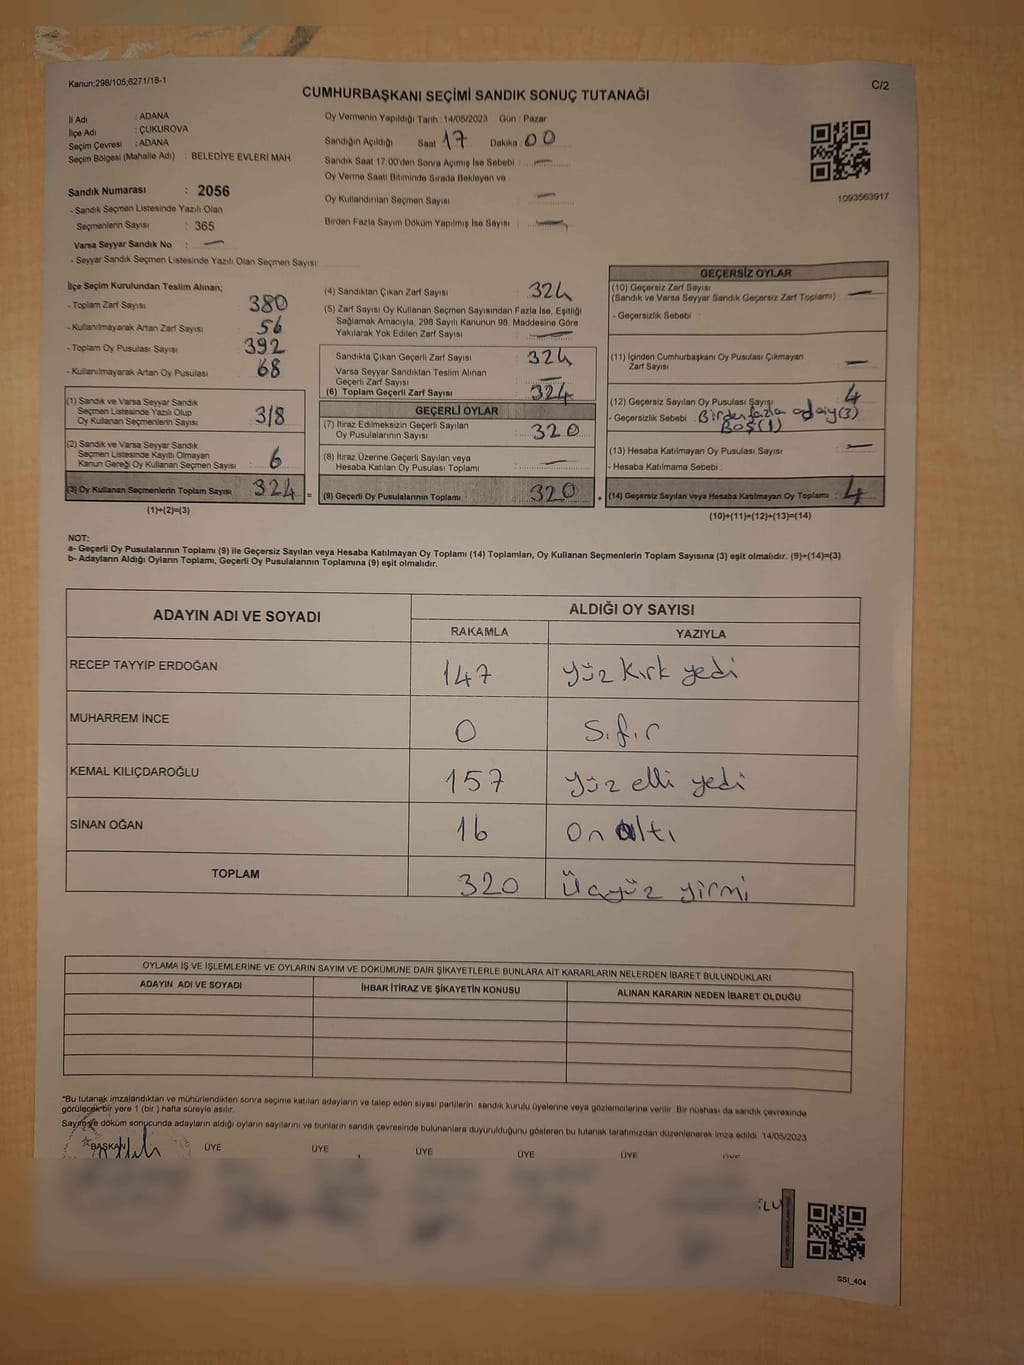 Kanun;298/105;6271/18-1
C/2
CUMHURBAŞKANI SEÇİMİ SANDIK SONUÇ TUTANAĞI
İl Adı : ADANA
İlçe Adı : ÇUKUROVA
Seçim Çevresi : ADANA
Seçim Bölgesi (Mahalle Adı) : BELEDİYE EVLERİ MAH.
Sandık Numarası : 2056
- Sandık Seçmen Listesinde Yazılı Olan
Seçmenlerin Sayısı : 365
Varsa Seyyar Sandık No : —
- Seyyar Sandık Seçmen Listesinde Yazılı Olan Seçmen Sayısı:
Oy Vermenin Yapıldığı Tarih : 14/05/2023 Gün : Pazar
Sandığın Açıldığı Saat 17 Dakika 00
Sandık Saat 17:00'den Sonra Açılmış İse Sebebi : —
Oy Verme Saati Bitiminde Sırada Bekleyen ve
Oy Kullandırılan Seçmen Sayısı —
Birden Fazla Sayım Döküm Yapılmış İse Sayısı : —
1093563917
İlçe Seçim Kurulundan Teslim Alınan;
- Toplam Zarf Sayısı : 380
- Kullanılmayarak Artan Zarf Sayısı : 56
- Toplam Oy Pusulası Sayısı : 392
- Kullanılmayarak Artan Oy Pusulası : 68
(1) Sandık ve Varsa Seyyar Sandık
Seçmen Listesinde Yazılı Olup
Oy Kullanan Seçmenlerin Sayısı : 318
(2) Sandık ve Varsa Seyyar Sandık
Seçmen Listesinde Kayıtlı Olmayan
Kanun Gereği Oy Kullanan Seçmen Sayısı : 6
(3) Oy Kullanan Seçmenlerin Toplam Sayısı : 324 =
(1)+(2)=(3)
(4) Sandıktan Çıkan Zarf Sayısı : 324
(5) Zarf Sayısı Oy Kullanan Seçmen Sayısından Fazla İse, Eşitliği
Sağlamak Amacıyla; 298 Sayılı Kanunun 98. Maddesine Göre
Yakılarak Yok Edilen Zarf Sayısı : —
Sandıkta Çıkan Geçerli Zarf Sayısı : 324
Varsa Seyyar Sandıktan Teslim Alınan
Geçerli Zarf Sayısı : —
(6) Toplam Geçerli Zarf Sayısı : 324
GEÇERLİ OYLAR
(7) İtiraz Edilmeksizin Geçerli Sayılan
Oy Pusulalarının Sayısı : 320
(8) İtiraz Üzerine Geçerli Sayılan veya
Hesaba Katılan Oy Pusulası Toplamı : —
(9) Geçerli Oy Pusulalarının Toplamı : 320 +
GEÇERSİZ OYLAR
(10) Geçersiz Zarf Sayısı
(Sandık ve Varsa Seyyar Sandık Geçersiz Zarf Toplamı) : —
- Geçersizlik Sebebi :
(11) İçinden Cumhurbaşkanı Oy Pusulası Çıkmayan
Zarf Sayısı : —
(12) Geçersiz Sayılan Oy Pusulası Sayısı : 4
- Geçersizlik Sebebi : Birden fazla aday (3)
BOŞ (1)
(13) Hesaba Katılmayan Oy Pusulası Sayısı : —
- Hesaba Katılmama Sebebi :
(14) Geçersiz Sayılan veya Hesaba Katılmayan Oy Toplamı : 4
(10)+(11)+(12)+(13)=(14)
NOT:
a- Geçerli Oy Pusulalarının Toplamı (9) ile Geçersiz Sayılan veya Hesaba Katılmayan Oy Toplamı (14) Toplamları, Oy Kullanan Seçmenlerin Toplam Sayısına (3) eşit olmalıdır. (9)+(14)=(3)
b- Adayların Aldığı Oyların Toplamı, Geçerli Oy Pusulalarının Toplamına (9) eşit olmalıdır.
ADAYIN ADI VE SOYADI ALDIĞI OY SAYISI
RAKAMLA YAZIYLA
RECEP TAYYİP ERDOĞAN 147 Yüz kırk yedi
MUHARREM İNCE 0 Sıfır
KEMAL KILIÇDAROĞLU 157 Yüz elli yedi
SİNAN OĞAN 16 On altı
TOPLAM 320 Üçyüz yirmi
OYLAMA İŞ VE İŞLEMLERİNE VE OYLARIN SAYIM VE DÖKÜMÜNE DAİR ŞİKAYETLERLE BUNLARA AİT KARARLARIN NELERDEN İBARET BULUNDUKLARI
ADAYIN ADI VE SOYADI İHBAR İTİRAZ VE ŞİKAYETİN KONUSU ALINAN KARARIN NEDEN İBARET OLDUĞU
*Bu tutanak imzalandıktan ve mühürlendikten sonra seçime katılan adayların ve talep eden siyasi partilerin sandık kurulu üyelerine veya gözlemcilerine verilir. Bir nüshası da sandık çevresinde
görülecek bir yere 1 (bir) hafta süreyle asılır.
Sayım ve döküm sonucunda adayların aldığı oyların sayılarını ve bunların sandık çevresinde bulunanlara duyurulduğunu gösteren bu tutanak tarafımızdan düzenlenerek imza edildi. 14/05/2023
BAŞKAN ÜYE ÜYE ÜYE ÜYE ÜYE ÜYE
SSI_404